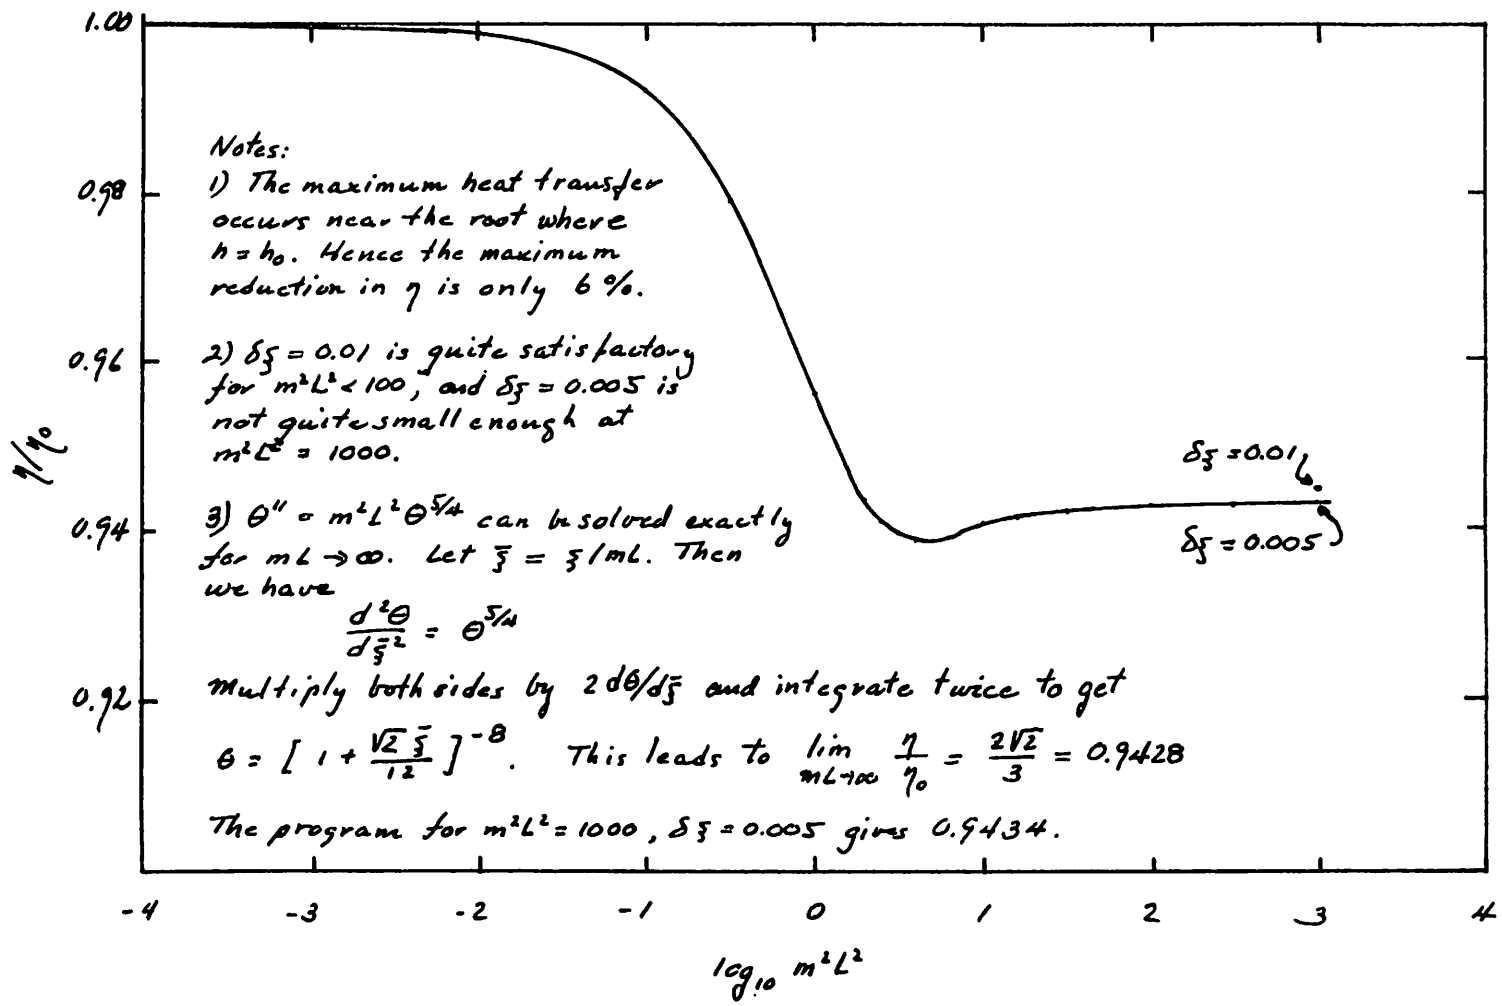 1.00
0.98
0.96
0.94
0.92
η/η₀
Notes:
1) The maximum heat transfer
occurs near the root where
h = h₀. Hence the maximum
reduction in η is only 6%.
2) δξ = 0.01 is quite satisfactory
for m²L² < 100, and δξ = 0.005 is
not quite small enough at
m²L² = 1000.
3) θ'' = m²L²θ^5/4 can be solved exactly
for mL → ∞. Let ξ̄ = ξ/mL. Then
we have
d²θ/dξ̄² = θ^5/4
Multiply both sides by 2dθ/dξ̄ and integrate twice to get
θ = [1 + √2 ξ̄/12]^-8. This leads to lim mL→∞ η/η₀ = 2√2/3 = 0.9428
The program for m²L² = 1000, δξ = 0.005 gives 0.9434.
δξ = 0.01
δξ = 0.005
-4 -3 -2 -1 0 1 2 3 4
log₁₀ m²L²